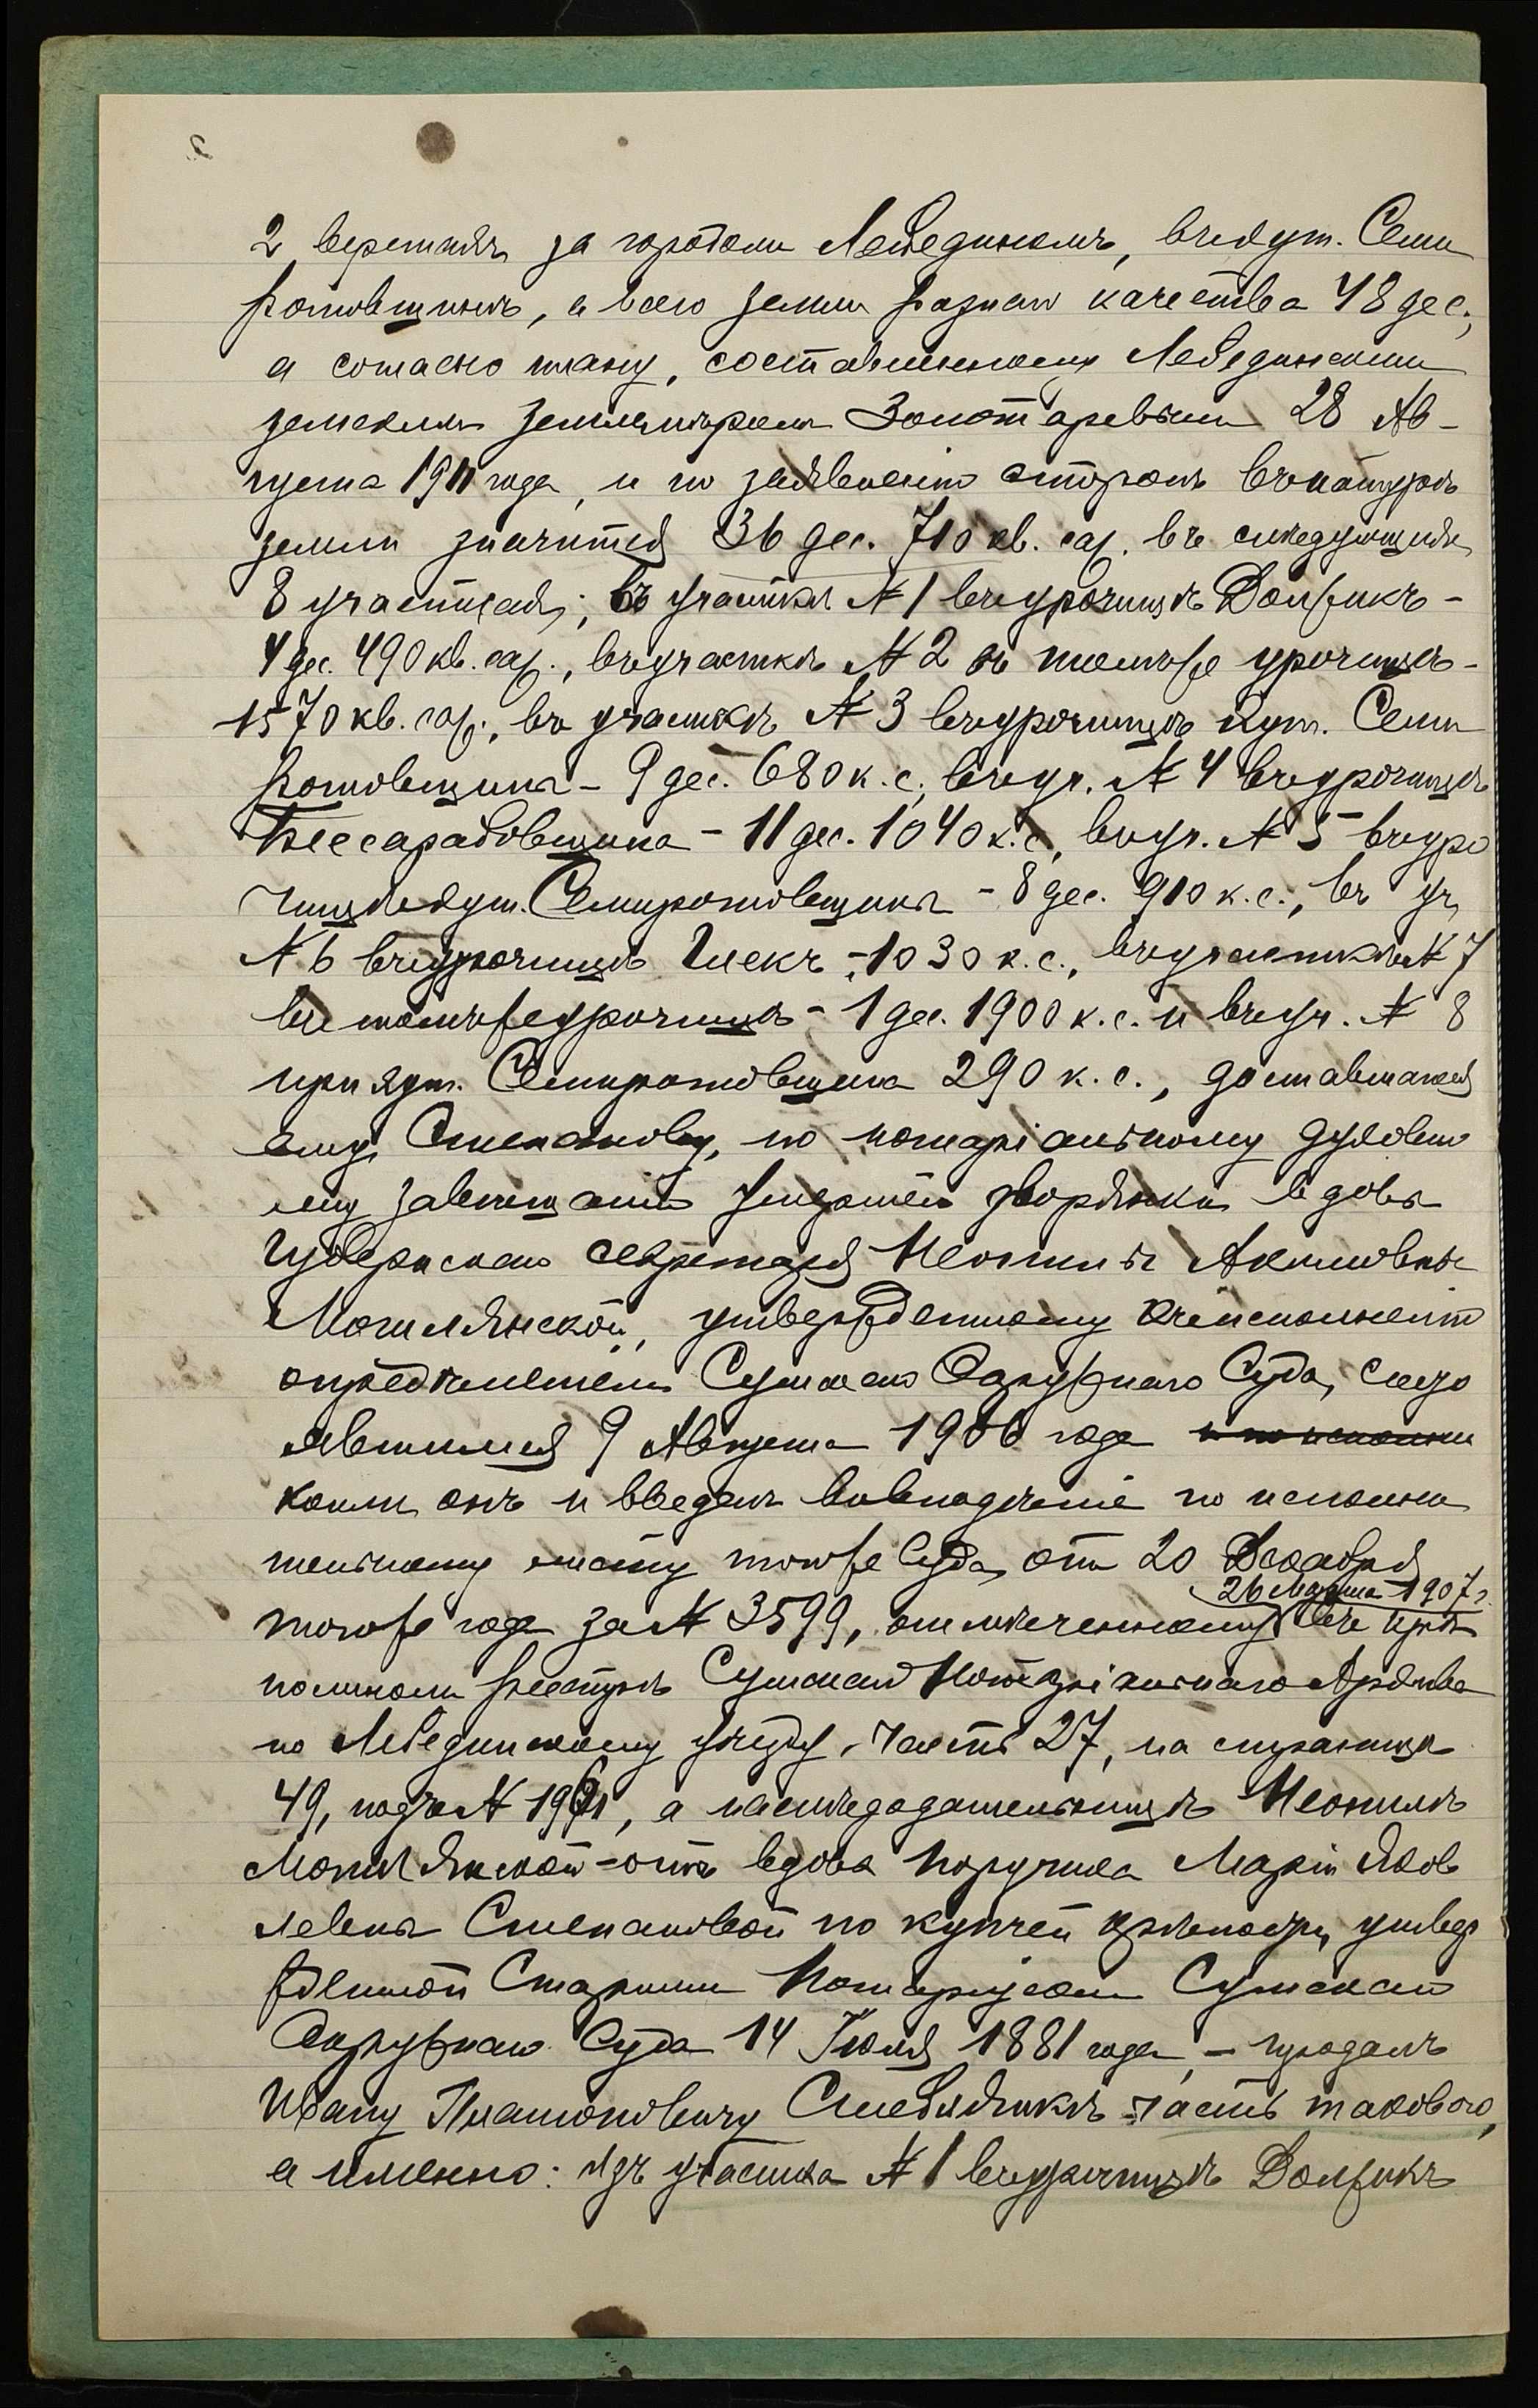 2 верстахъ за городомъ Лебединомъ, въ хут. Семи
ротовщинѣ, а всего земли разнаго качества 48 дес.,
а согласно плану, составленному Лебединскимъ
земскимъ землемѣромъ Золотаревымъ 28 Ав-
густа 1911 года, и по заявленію сторонъ въ натурѣ
земли значится 36 дес. 710 кв. саж. въ слѣдующихъ
8 участкахъ; въ участкѣ № 1 въ урочищѣ Должикъ -
4 дес. 490 кв. саж., въ участкѣ № 2 въ томъ же урочищѣ -
1570 кв. саж., въ участкѣ № 3 въ урочищѣ хут. Семи
ротовщина - 9 дес. 680 к. с., въ уч. № 4 въ урочищѣ
Бессарабовщина - 11 дес. 1040 к. с., въ уч. № 5 въ уро
чищѣ хут. Семиротовщина - 8 дес. 910 к. с., въ уч.
№ 6 въ урочищѣ - 1030 к. с., въ участкѣ № 7
въ томъ же урочищѣ - 1 дес. 1900 к. с. и въ уч. № 8
при хут. Семиротовщина 290 к. с., доставшагося
ему, Степанову, по нотаріальному духовно
му завѣщанію умершей дворянки вдовы
Губернскаго секретаря Неонилы Акимовны
Могилянской, утвержденному къ исполненію
опредѣленіемъ Сумскаго Окружнаго Суда, состо
явшимся 9 Августа 1906 года и по исполни
коимъ онъ и введенъ во владѣніе по исполни
тельному листу того же Суда, отъ 20 Декабря
26 Марта 1907 г.
того же года за № 3599, отмѣченному въ крѣ
постномъ реестрѣ Сумскаго Нотаріальнаго Архива
по Лебединскому уѣзду, часть 27, на страницѣ
49, подъ №, а наслѣдодательницѣ Неонилѣ
Могилянской - отъ вдовы поручика Маріи Яков
левны Степановой по купчей крѣпости, утвер
жденной Старшимъ Нотаріусомъ Сумскаго
Окружнаго Суда 14 Іюля 1881 года, - продалъ
Ивану Платоновичу часть таковаго,
а именно: изъ участка № 1 въ урочищѣ Должикъ